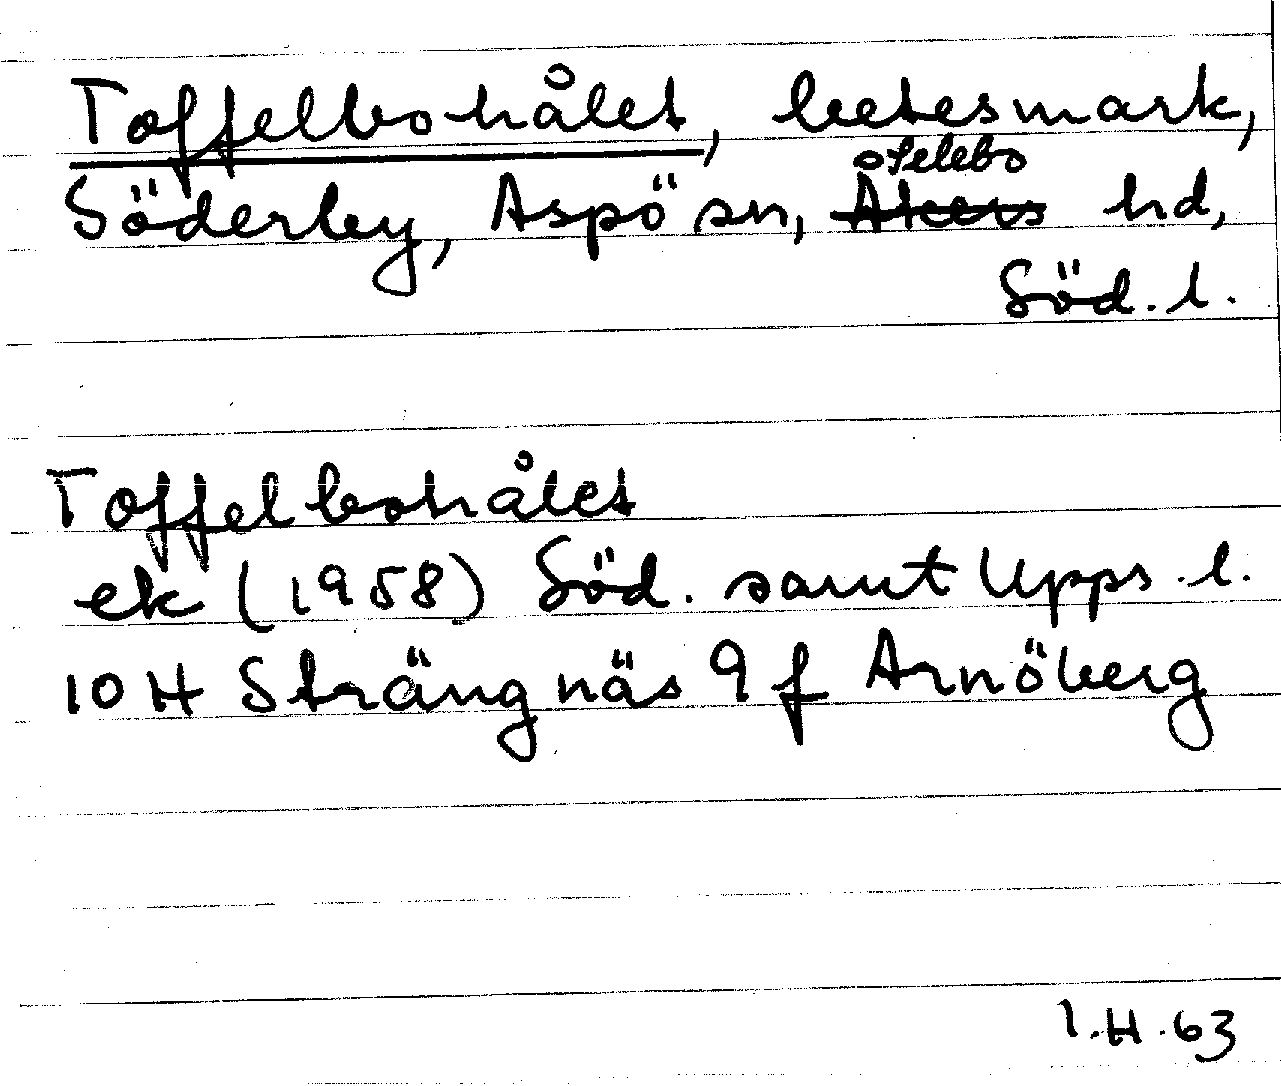 Toffelbohålet, betesmark,
Selebo
Söderby, Aspö sn, Åkers hd,
Söd. l.
Toffelbohålet
ek (1958) Söd. samt Upps. l.
10 H Strängnäs 9 f Arnöberg
I.H. 63